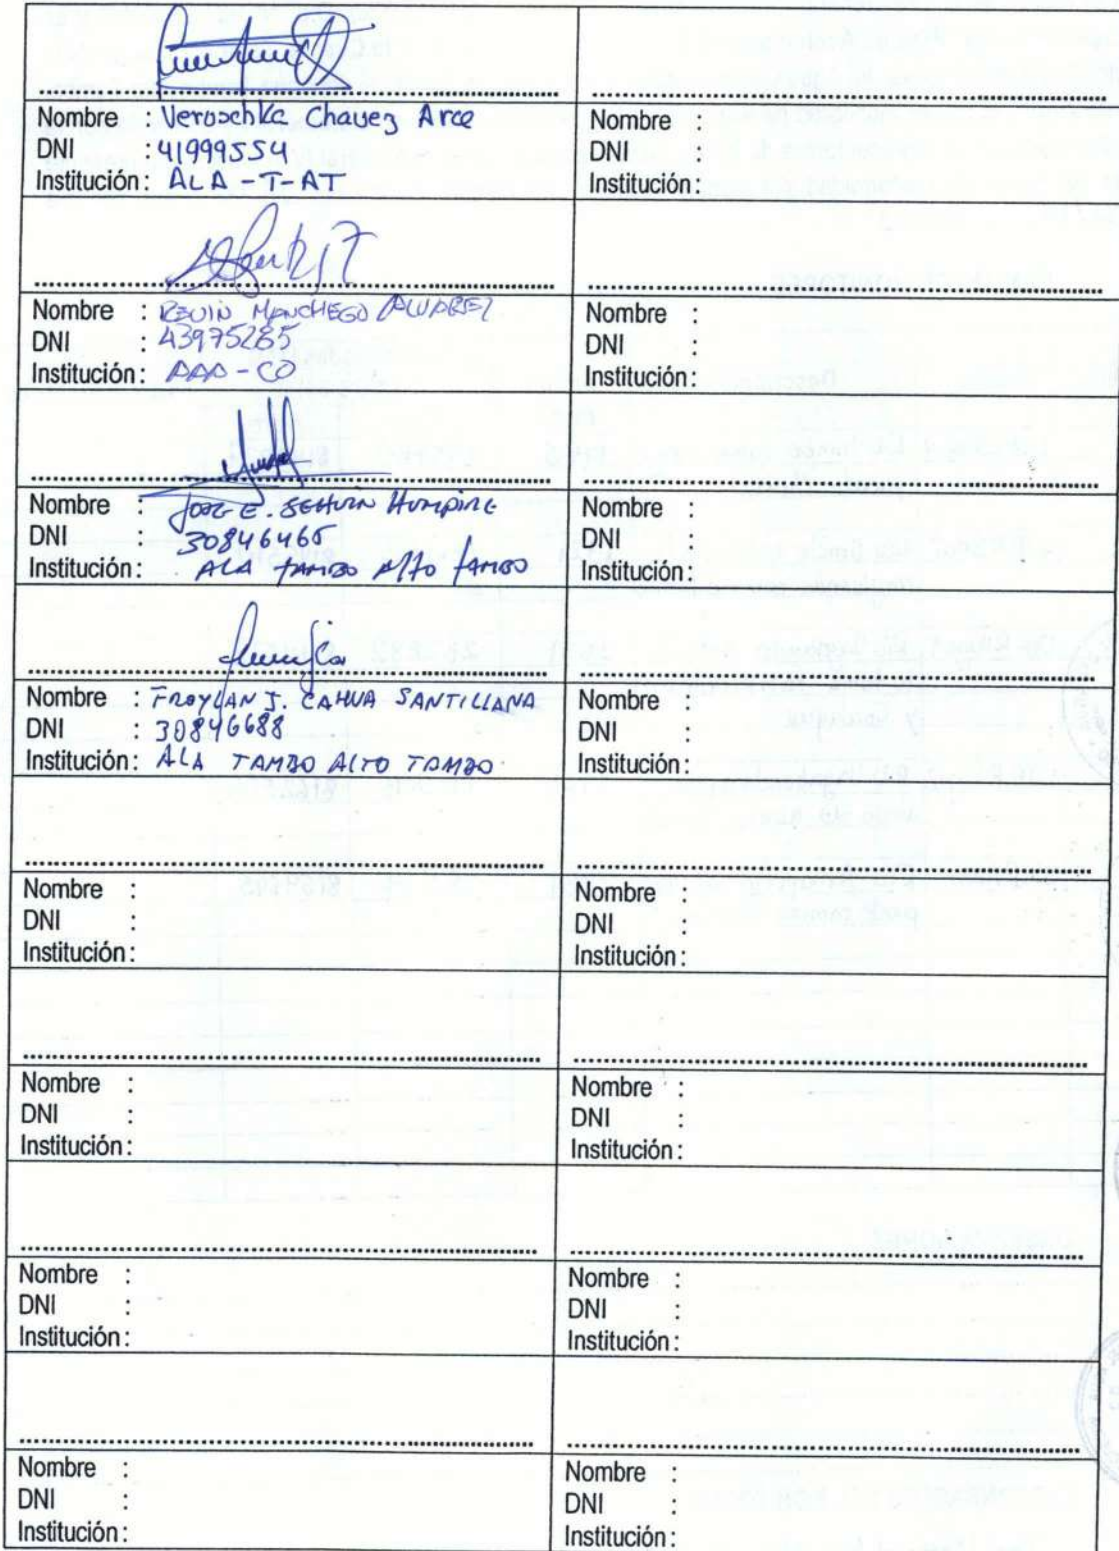 Nombre : Veruschka Chavez Arce
DNI : 41999554
Institución : ALA - T - AT
Nombre :
DNI :
Institución :
Nombre : KEVIN MANCHEGO ALVAREZ
DNI : 43975285
Institución : AAA - CO
Nombre :
DNI :
Institución :
Nombre : JORGE E. HUMPIRE
DNI : 30846465
Institución : ALA TAMBO Alto TAMBO
Nombre :
DNI :
Institución :
Nombre : FROYLAN J. CAHUA SANTILLANA
DNI : 30846688
Institución : ALA TAMBO ALTO TAMBO
Nombre :
DNI :
Institución :
Nombre :
DNI :
Institución :
Nombre :
DNI :
Institución :
Nombre :
DNI :
Institución :
Nombre :
DNI :
Institución :
Nombre :
DNI :
Institución :
Nombre :
DNI :
Institución :
Nombre :
DNI :
Institución :
Nombre :
DNI :
Institución :